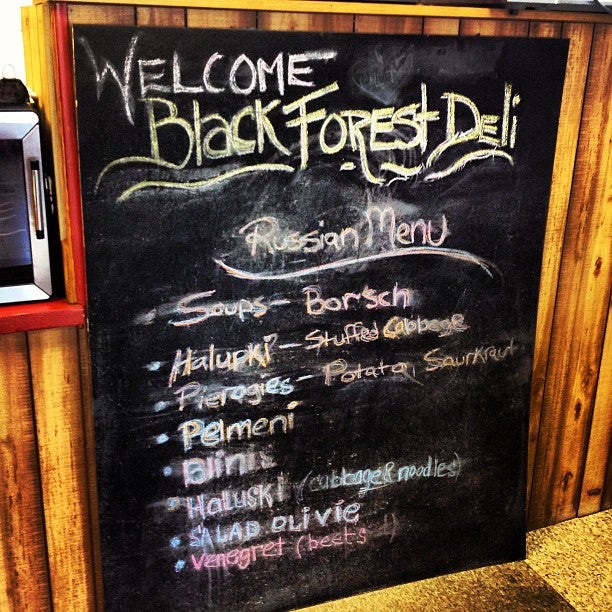 WELCOME
Black FOREST Deli
Russian Menu
• Soups - Borsch
• Halupki - Stuffed Cabbage
• Pierogies - Potato, Saurkraut
• Pelmeni
• Blinis
• Haluski (cabbage & noodles)
• SALAD OLIVIE
• Venegret (beets)